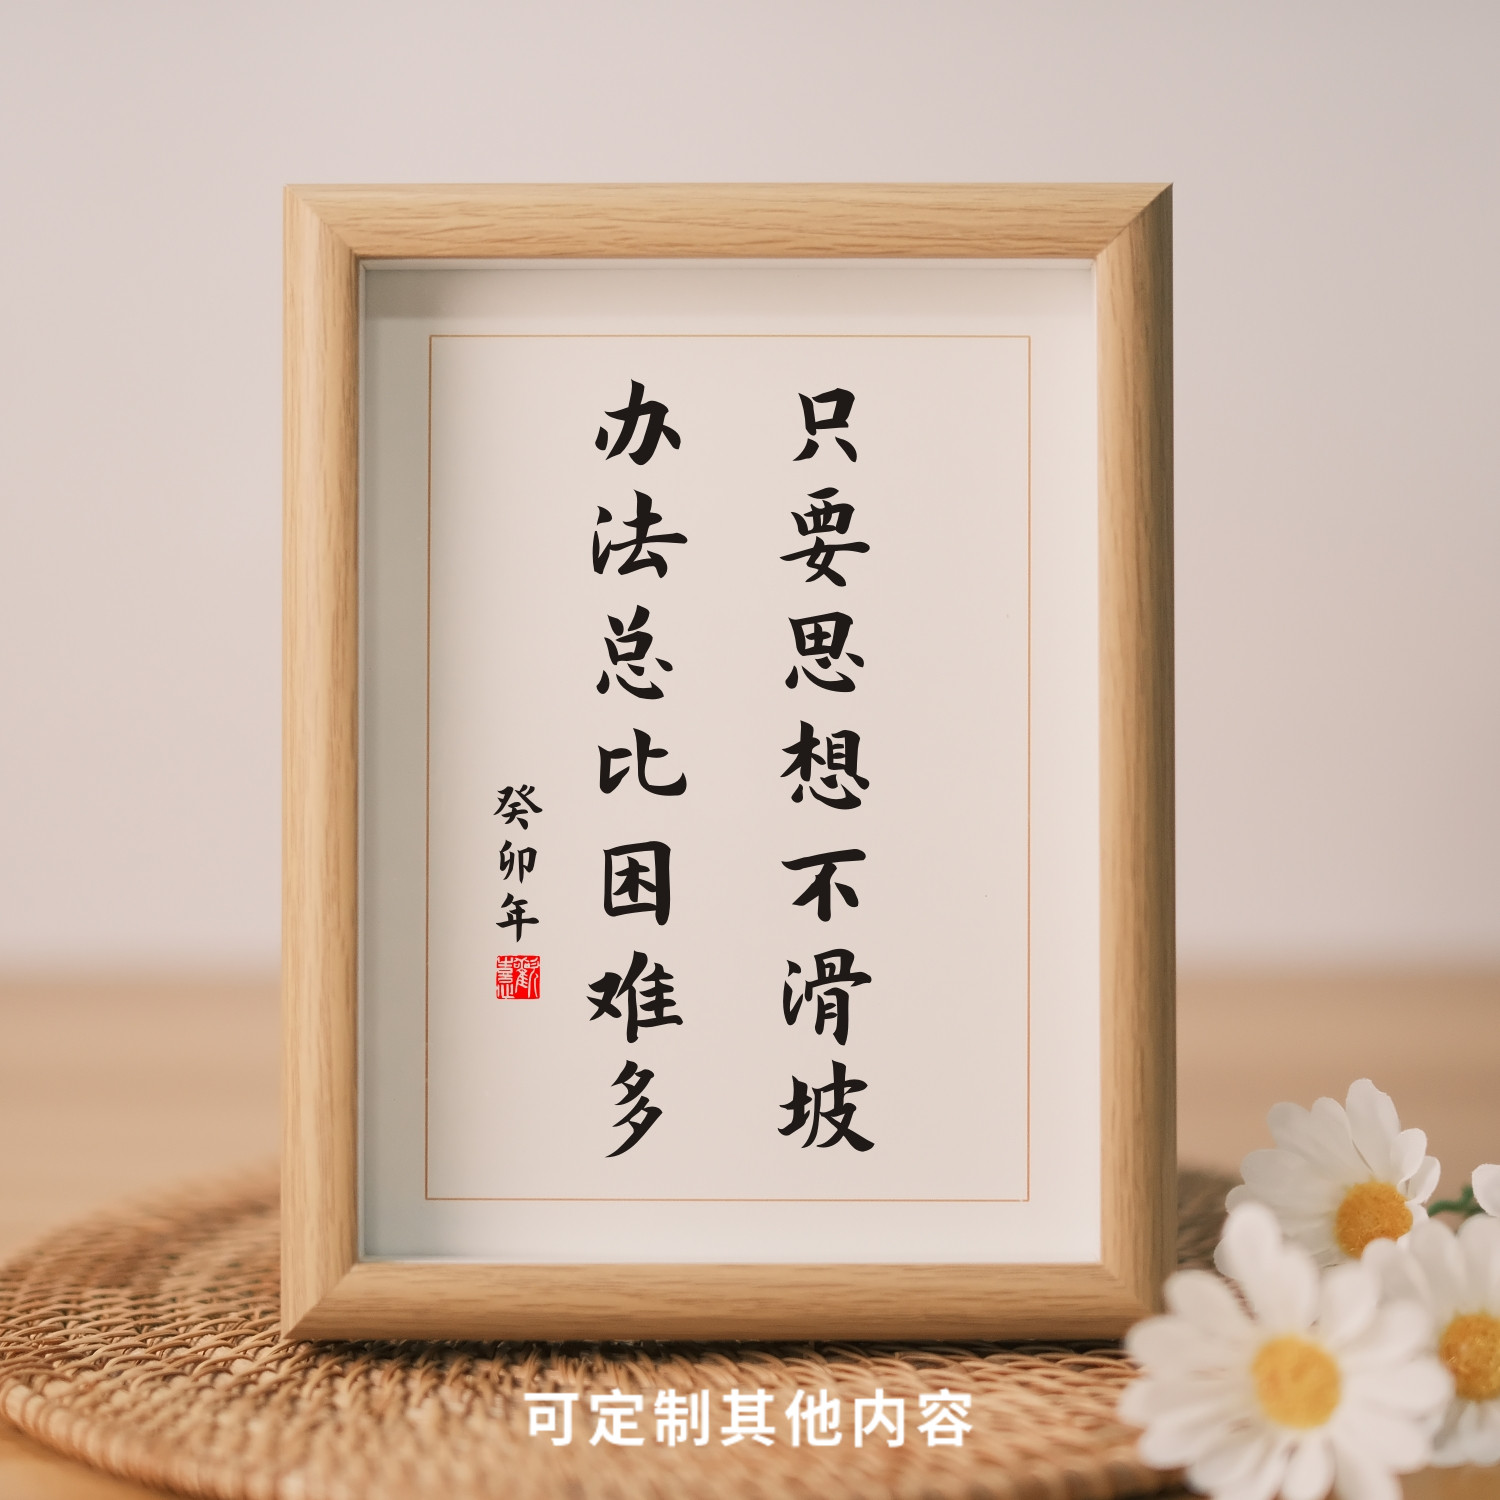 只要思想不滑坡
办法总比困难多
癸卯年
可定制其他内容